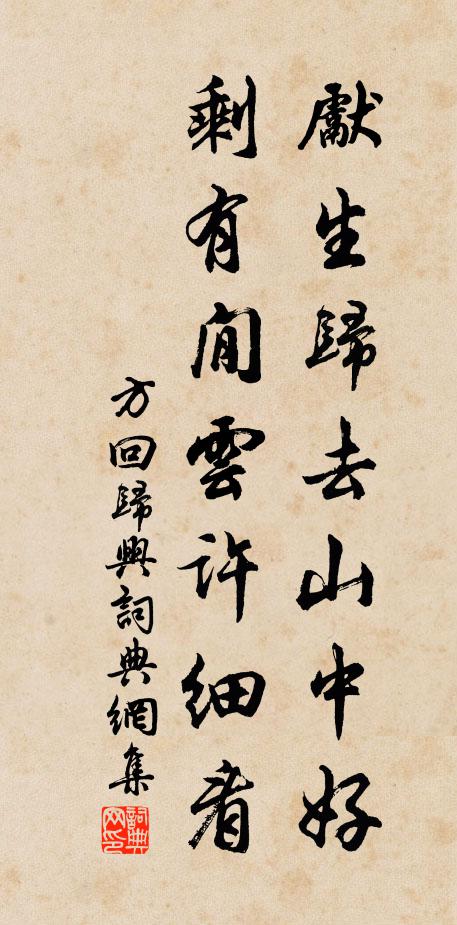 獻生歸去山中好
剩有閒雲許細看
方回歸興詞典網集
詞典網印